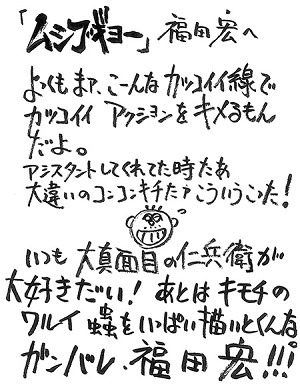 「ムシブギョー」福田宏へ
よっくもまァ、こーんな カッコイイ線で
カッコイイ アクションを キメるもん
だよ。
アシスタントしてくれてた時たあ
大違いのコンコンキチたァこういうこった!
いつも 大真面目の仁兵衛が
大好きだい! あとは キモチの
ワルイ 蟲をいっぱい描いとくんな
ガンバレ・福田宏!!!